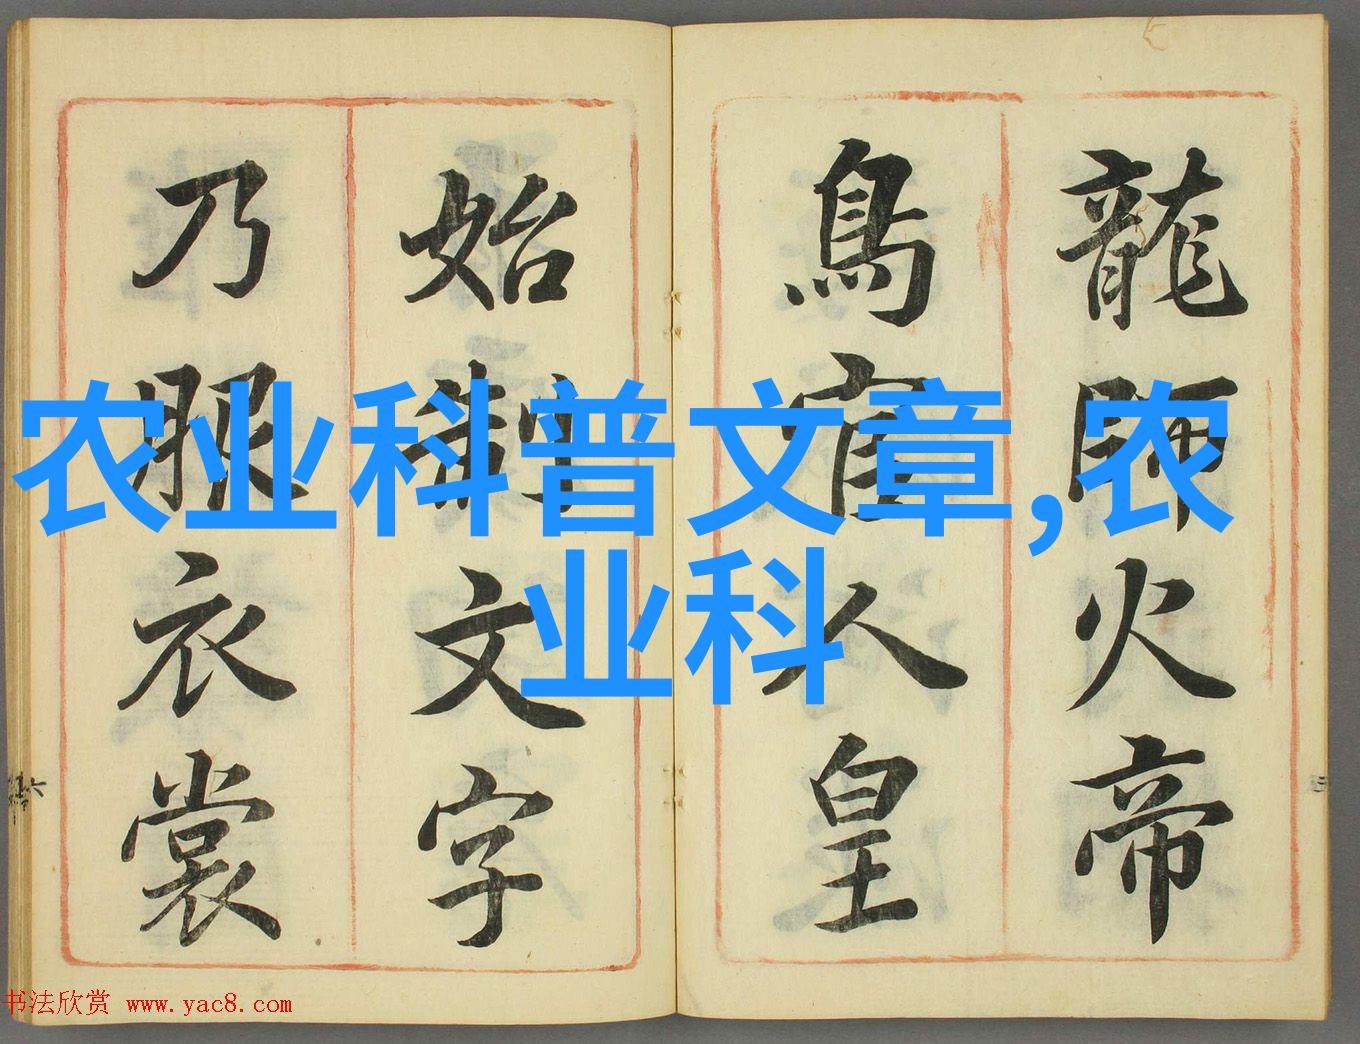 龍師火帝
鳥官人皇
始制文字
乃服衣裳
农业科普文章,农
业科
书法欣赏 www.yac8.com